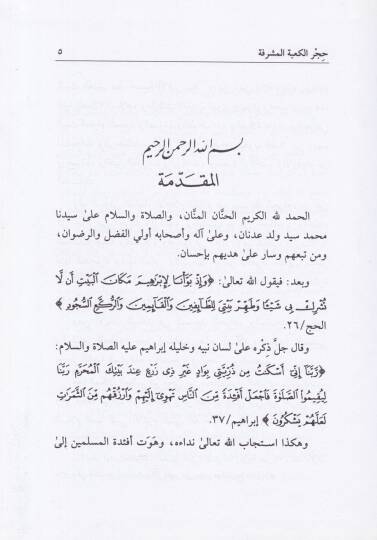 حِجْر الكعبة المشرفة ٥
بسم الله الرحمن الرحيم
المقدّمَة
الحمد لله الكريم الحنَّان المنَّان، والصلاة والسلام علىٰ سيدنا
محمد سيد ولد عدنان، وعلىٰ آله وأصحابه أولي الفضل والرضوان،
ومن تبعهم وسار علىٰ هديهم بإحسان.
وبعد: فيقول الله تعالىٰ: ﴿وَإِذْ بَوَّأْنَا لِإِبْرَٰهِيمَ مَكَانَ ٱلْبَيْتِ أَن لَّا
تُشْرِكْ بِى شَيْـًٔا وَطَهِّرْ بَيْتِىَ لِلطَّآئِفِينَ وَٱلْقَآئِمِينَ وَٱلرُّكَّعِ ٱلسُّجُودِ﴾
الحج/٢٦.
وقال جلَّ ذِكْره علىٰ لسان نبيه وخليله إبراهيم عليه الصلاة والسلام:
﴿رَّبَّنَآ إِنِّىٓ أَسْكَنتُ مِن ذُرِّيَّتِى بِوَادٍ غَيْرِ ذِى زَرْعٍ عِندَ بَيْتِكَ ٱلْمُحَرَّمِ رَبَّنَا
لِيُقِيمُوا۟ ٱلصَّلَوٰةَ فَٱجْعَلْ أَفْـِٔدَةً مِّنَ ٱلنَّاسِ تَهْوِىٓ إِلَيْهِمْ وَٱرْزُقْهُم مِّنَ ٱلثَّمَرَٰتِ
لَعَلَّهُمْ يَشْكُرُونَ﴾ إبراهيم/٣٧.
وهكذا استجاب الله تعالىٰ نداءه، وهَوَت أفئدة المسلمين إلىٰ